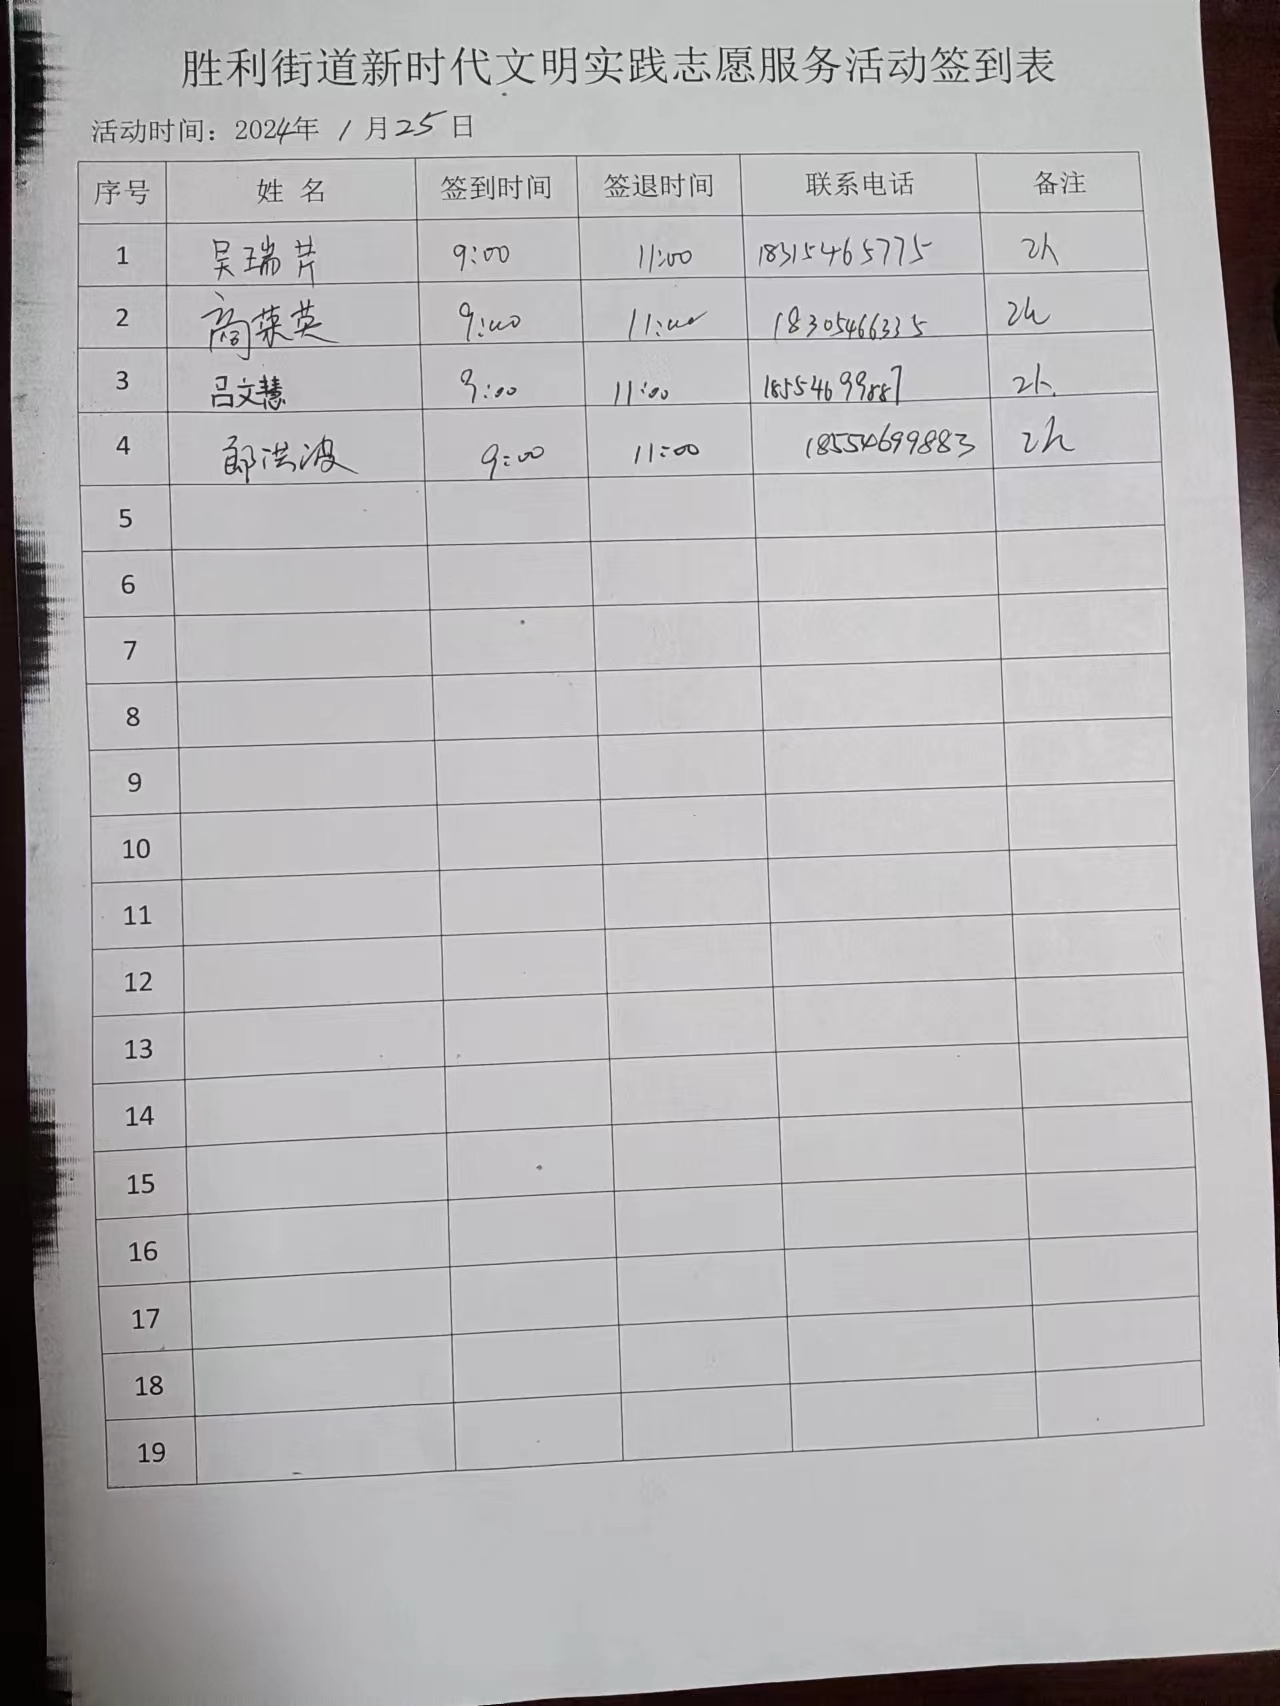 胜利街道新时代文明实践志愿服务活动签到表
活动时间：2024年 1 月25日
序号 姓 名 签到时间 签退时间 联系电话 备注
1 吴瑞芹 9:00 11:00 18315465775 2h
2 商荣英 9:00 11:00 18305466335 2h
3 吕文慧 9:00 11:00 18554699887 2h
4 郎洪波 9:00 11:00 18554699883 2h
5
6
7
8
9
10
11
12
13
14
15
16
17
18
19